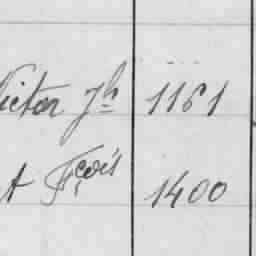 Victor Jh 1161
A Fçois 1400